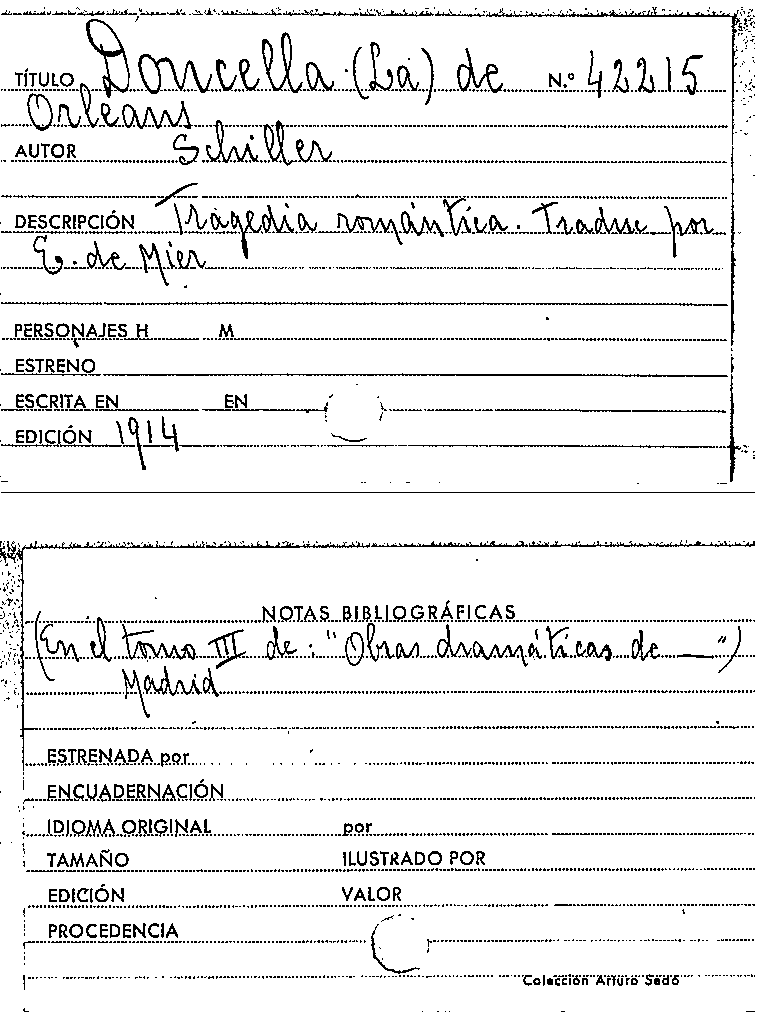 TÍTULO Doncella (La) de N.º 42215
Orleans
AUTOR Schiller
DESCRIPCIÓN Tragedia romántica. Traduc por
E. de Mier
PERSONAJES H M
ESTRENO
ESCRITA EN EN
EDICIÓN 1914
NOTAS BIBLIOGRÁFICAS
(En el tomo III de: "Obras dramáticas de —")
Madrid
ESTRENADA por
ENCUADERNACIÓN
IDIOMA ORIGINAL por
TAMAÑO ILUSTRADO POR
EDICIÓN VALOR
PROCEDENCIA
Colección Arturo Sedó